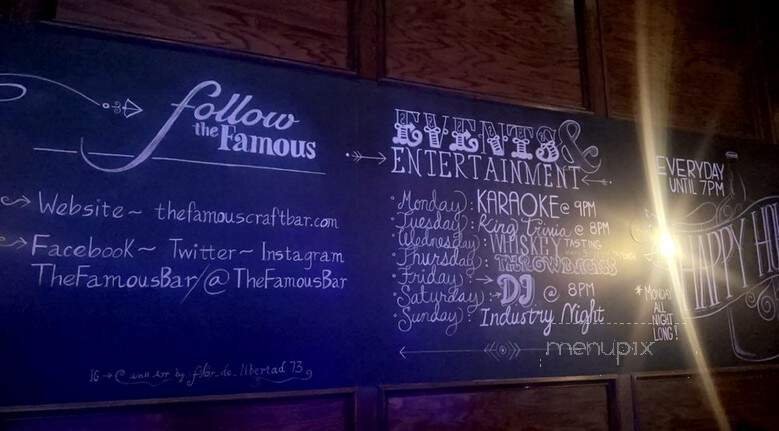 follow
the Famous
Website~ thefamouscraftbar.com
Facebook~ Twitter~ Instagram
TheFamousBar/@TheFamousBar
EVENTS &
ENTERTAINMENT
Monday: KARAOKE @ 9PM
Tuesday: King Trivia @ 8PM
Wednesday: WHISKEY TASTING
Thursday: THROWBACKS
Friday
Saturday: DJ @ 8PM
Sunday: Industry Night
EVERYDAY
UNTIL 7PM
HAPPY HO
*MONDAY
ALL
NIGHT
LONG!
menupix